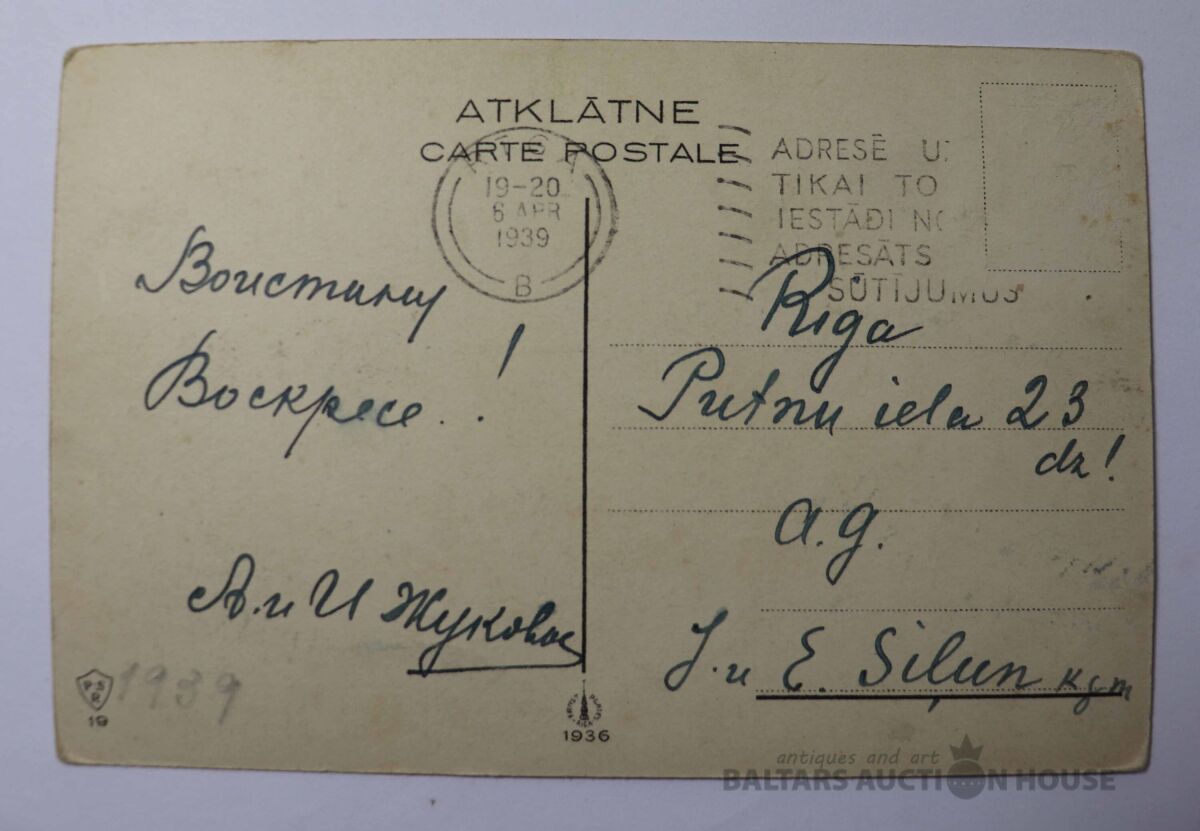 ATKLĀTNE
CARTE POSTALE
19-20
6 APR
1939
B
ADRESĒ
TIKAI TO
IESTĀDI
ADRESĀTS
SŪTĪJUMUS
Воистину
Воскресе..!
А. и И Жуковы
Riga
Putnu iela 23
dz!
a.g.
J. и E. Siļun kgm
PSR
19
1939
RIGA
1936
antiques and art
BALTARS AUCTION HOUSE